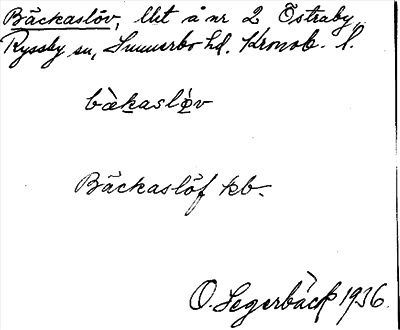 Bäckaslöv, lht å nr 2 Östraby
Ryssby sn, Sunnerbo hd. Kronob. l.
bàkaslö̀v
Bäckaslöf kb.
O. Segerbäck 1936.